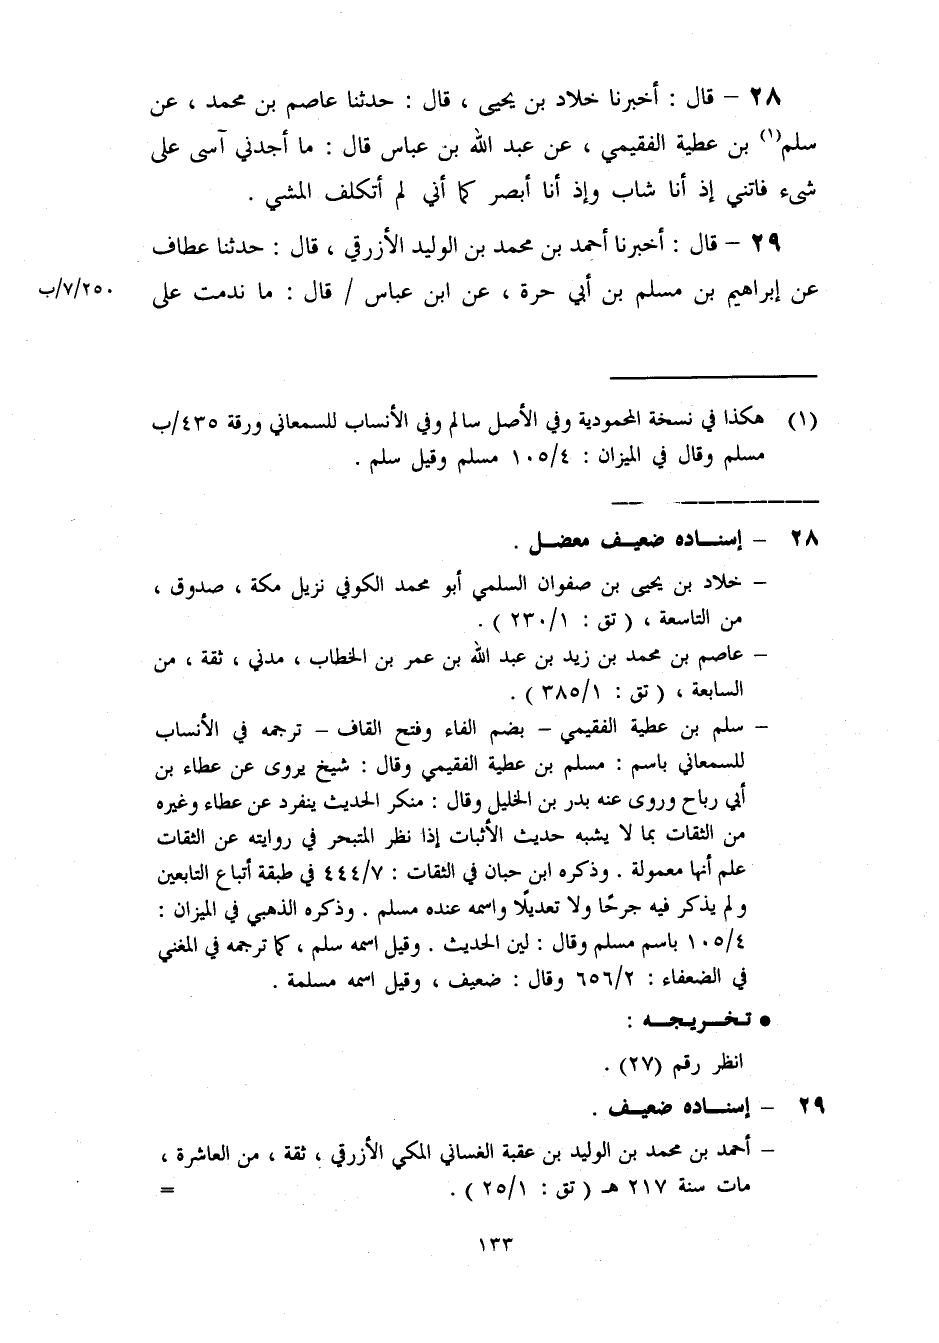 ٢٨ – قال : أخبرنا خلاد بن يحيى ، قال : حدثنا عاصم بن محمد ، عن
سلم(١) بن عطية الفقيمي ، عن عبد الله بن عباس قال : ما أجدني آسى على
شىء فاتني إذ أنا شاب وإذ أنا أبصر كما أني لم أتكلف المشي .
٢٩ – قال : أخبرنا أحمد بن محمد بن الوليد الأزرقي ، قال : حدثنا عطاف
عن إبراهيم بن مسلم بن أبي حرة ، عن ابن عباس / قال : ما ندمت على
٧/٢٥٠/ب
(١) هكذا في نسخة المحمودية وفي الأصل سالم وفي الأنساب للسمعاني ورقة ٤٣٥/ب
مسلم وقال في الميزان : ١٠٥/٤ مسلم وقيل سلم .
٢٨ – إسناده ضعيف معضل .
– خلاد بن يحيى بن صفوان السلمي أبو محمد الكوفي نزيل مكة ، صدوق ،
من التاسعة ، ( تق : ٢٣٠/١ ) .
– عاصم بن محمد بن زيد بن عبد الله بن عمر بن الخطاب ، مدني ، ثقة ، من
السابعة ، ( تق : ٣٨٥/١ ) .
– سلم بن عطية الفقيمي – بضم الفاء وفتح القاف – ترجمه في الأنساب
للسمعاني باسم : مسلم بن عطية الفقيمي وقال : شيخ يروى عن عطاء بن
أبي رباح وروى عنه بدر بن الخليل وقال : منكر الحديث ينفرد عن عطاء وغيره
من الثقات بما لا يشبه حديث الأثبات إذا نظر المتبحر في روايته عن الثقات
علم أنها معمولة . وذكره ابن حبان في الثقات : ٤٤٤/٧ في طبقة أتباع التابعين
ولم يذكر فيه جرحًا ولا تعديلًا واسمه عنده مسلم . وذكره الذهبي في الميزان :
١٠٥/٤ باسم مسلم وقال : لين الحديث . وقيل اسمه سلم ، كما ترجمه في المغني
في الضعفاء : ٦٥٦/٢ وقال : ضعيف ، وقيل اسمه مسلمة .
● تخريجه :
انظر رقم (٢٧) .
٢٩ – إسناده ضعيف .
– أحمد بن محمد بن الوليد بن عقبة الغساني المكي الأزرقي ، ثقة ، من العاشرة ،
مات سنة ٢١٧ هـ ( تق : ٢٥/١ ) . =
١٣٣